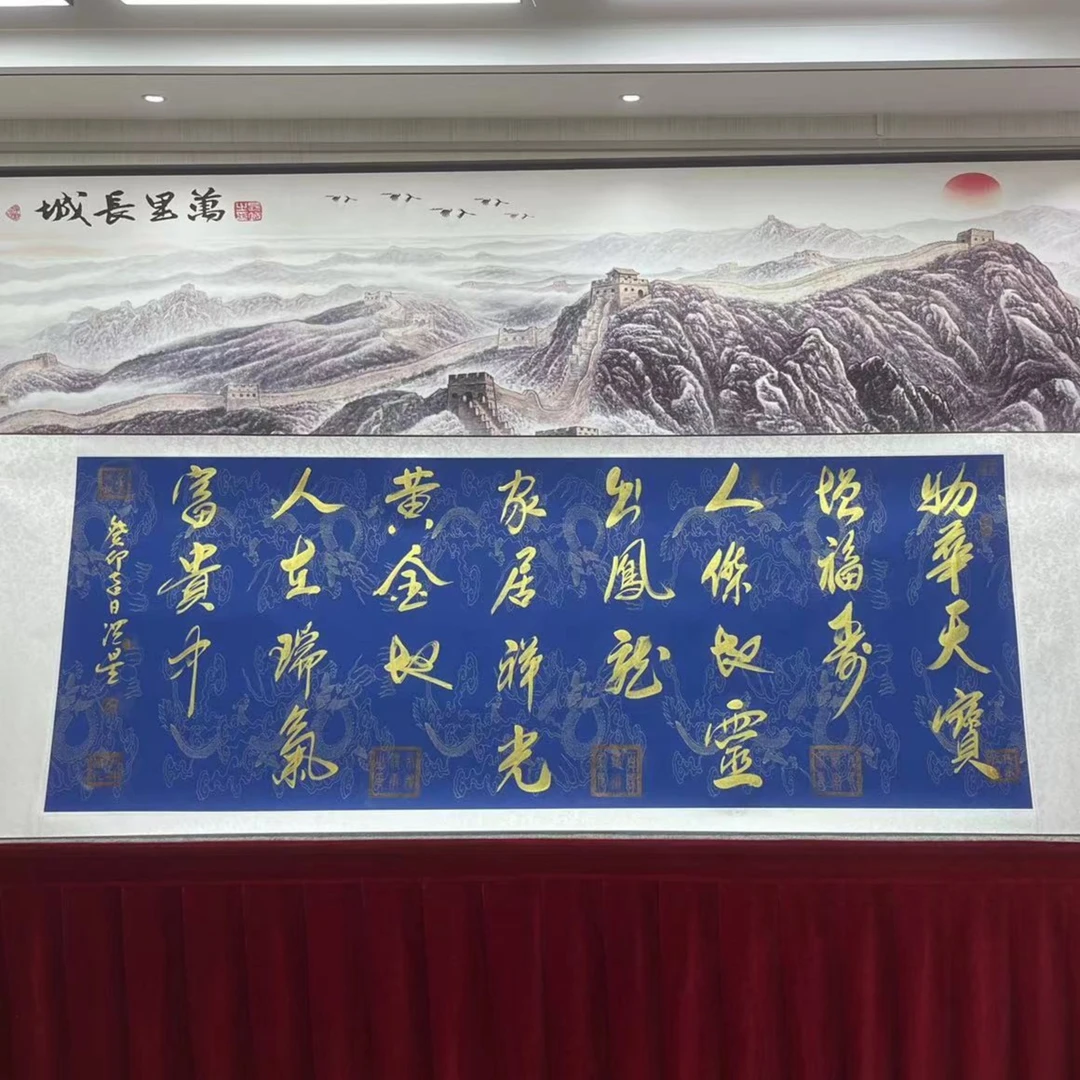 萬里長城
物華天寶
增福壽
人傑地靈
出鳳龍
家居祥光
黄金地
人在瑞氣
富貴中
癸卯吉日